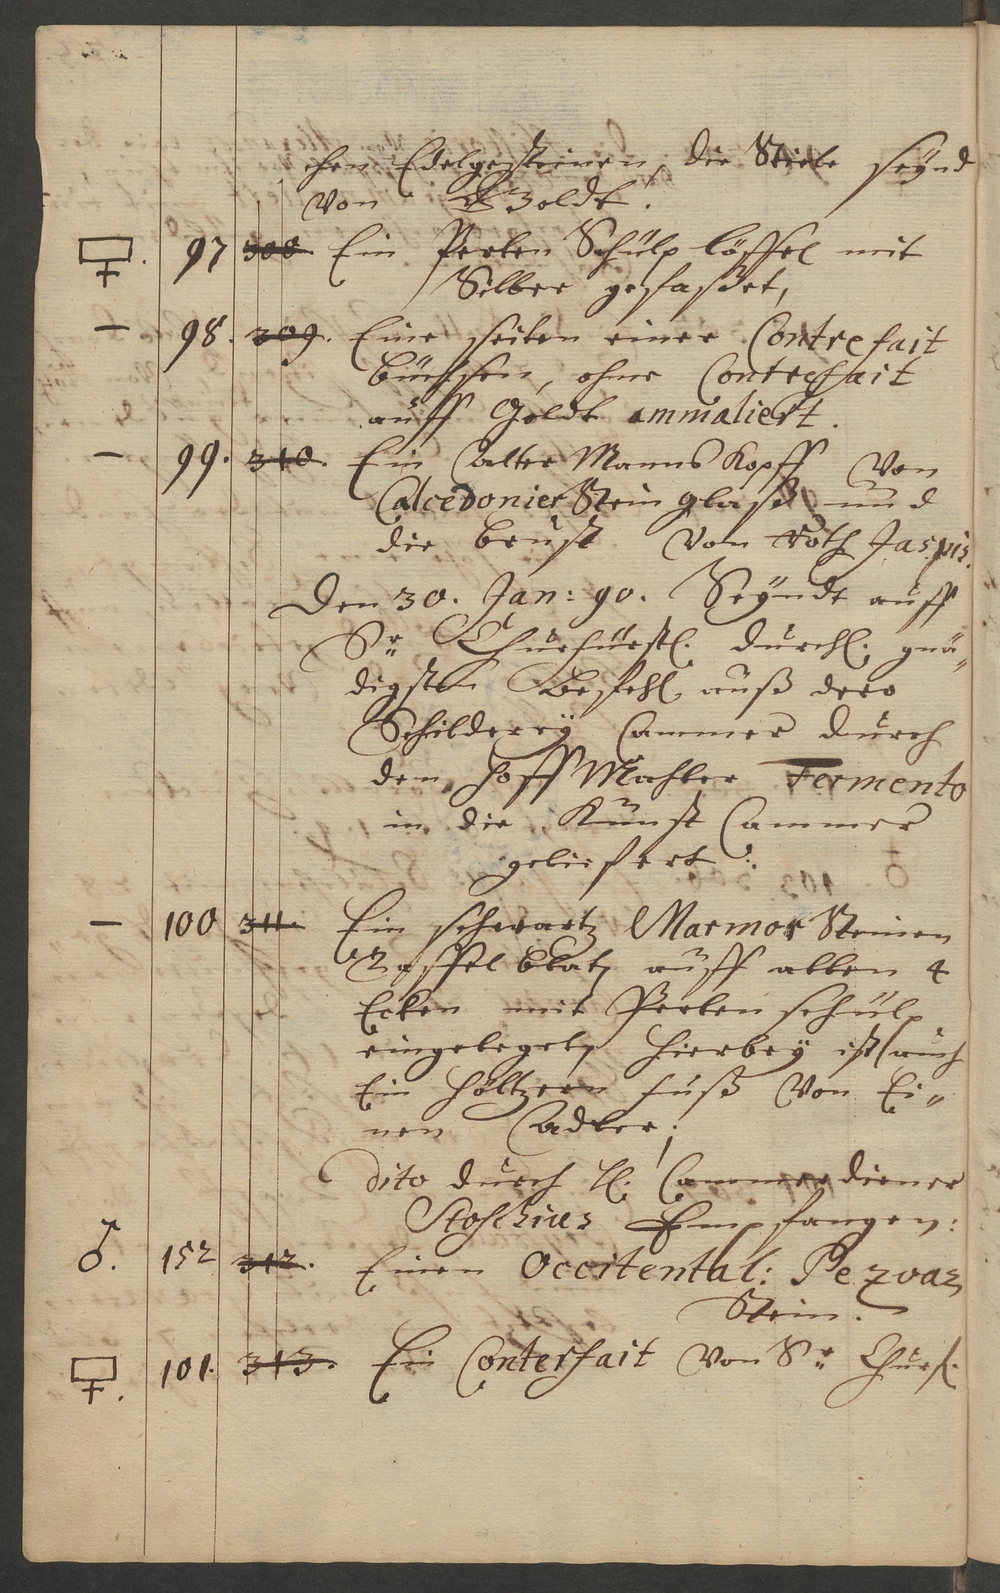 chen Edelgesteinen, die Stiele seynd
von Goldt.
97 308. Ein Perlen Schülp löffel mit
Silber gefasßet,
98. 309. Eine seiten einer Contrefait
büchssen, ohne Contrefait
auff Goldt ammaliert.
99. 310. Ein alter Manns Kopff von
Calcedonier Stein glaß und
die brust von roth Jaspis.
Den 30. Jan: 90. Seyndt auff
Sr. Churfürstl. Durchl. gnä„
digsten Befehl auß dero
Schilderey Cammer durch
den Hoff Mahler Fermento
in die Kunst Cammer
geliefert:
100 311. Ein schwartz Marmor Steinen
Taffel blatz auff allen 4
Ecken mit Perlen schülp
eingeleget, hierbey ist auch
Ein höltzern fuß von Ei„
nen Adler;
dito durch H. Cammerdiener
Stoschius Empfangen:
♂. 152 312. Einen Occitental: Pezoar
Stein.
101. 313. Ein Conterfait von Sr. Churf.